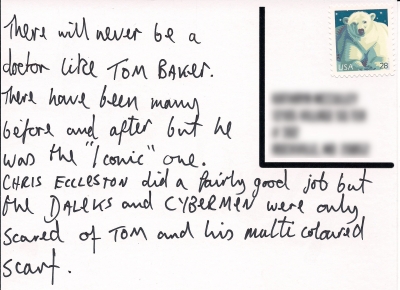 There will never be a
doctor like TOM BAKER.
There have been many
before and after but he
was the "Iconic" one.
CHRIS ECCLESTON did a fairly good job but
the DALEKS and CYBERMEN were only
scared of TOM and his multi coloured
scarf.
USA 28